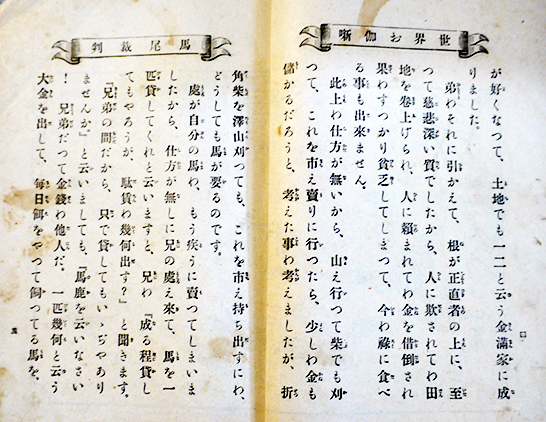 世界お伽噺
が好くなつて、土地でも一二と云う金滿家に成
りました。
弟わそれに引かえて、根が正直者の上に、至
つて慈悲深い質でしたから、人に欺されてわ田
地を卷上げられ、人に頼まれてわ金を借倒され
果わすつかり貧乏してしまつて、今わ祿に食べ
る事も出來ません。
此上わ仕方が無いから、山え行つて柴でも刈
つて、これを市え賣りに行つたら、少しわ金も
儲かるだろうと、考えた事わ考えましたが、折
四
馬尾裁判
角柴を澤山刈つても、これを市え持ち出すにわ、
どうしても馬が要るのです。
處が自分の馬わ、もう疾うに賣つてしまいま
したから、仕方が無しに兄の處え來て、馬を一
匹貸してくれと云いますと、兄わ『成る程貸し
てもやろうが、駄賃わ幾何出す?』と聞きます。
『兄弟の間だから、只で貸してもいゝぢやあり
ませんか』と云いましても、『馬鹿を云いなさい
!兄弟だつて金錢わ他人だ。一匹幾何と云う
大金を出して、毎日餌をやつて飼つてる馬を、
五